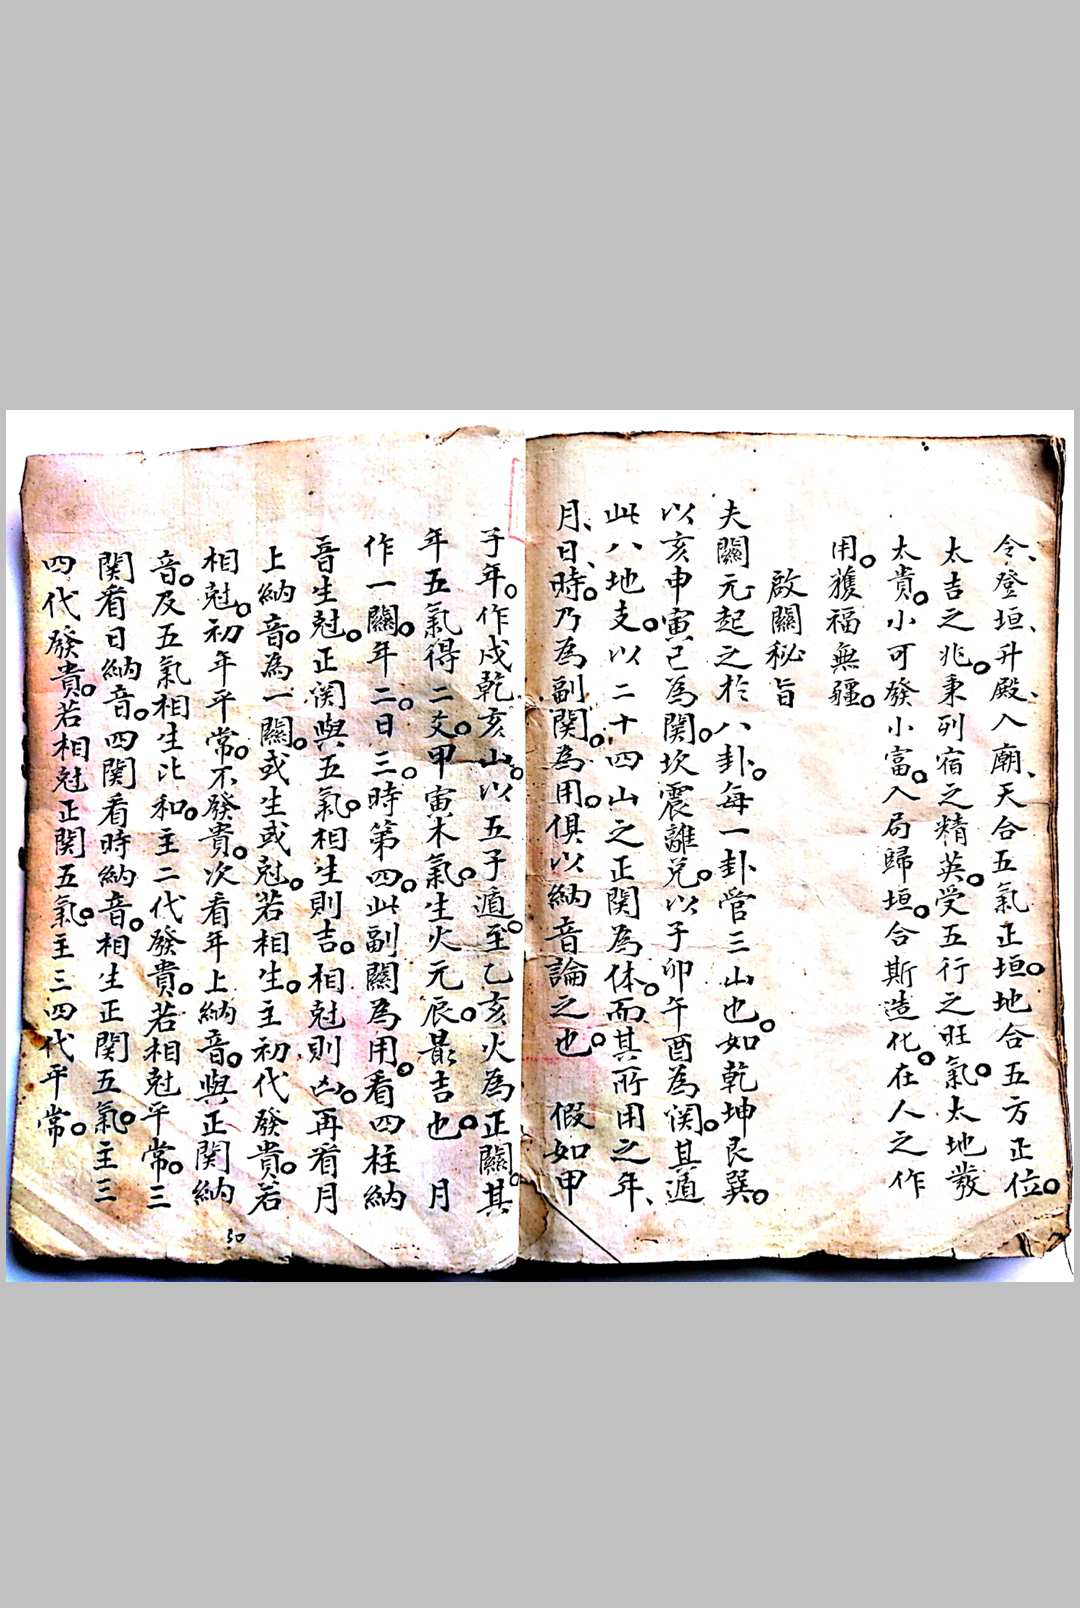 令、登垣、升殿、入廟、天合五氣正垣。地合五方正位。
太吉之兆。秉列宿之精英。受五行之旺氣。太地發
太貴。小可發小富。入局歸垣。合斯造化。在人之作
用。獲福無疆。
啟關秘旨
夫關元起之於八卦。每一卦管三山也。如乾坤艮巽。
以亥申寅己為関。坎震離兌。以子卯午酉為関。其遁
此八地支。以二十四山之正関為体。而其所用之年、
月、日、時。乃為副関。為用。俱以納音論之也。 假如甲
子年。作戌乾亥山。以五子遁。至乙亥火為正關。其
年五氣得二爻。甲寅木氣。生火元辰。最吉也。 月
作一關。年二。日三。時第四。此副關為用。看四柱納
音生尅。正関與五氣。相生則吉。相尅則凶。再看月
上納音。為一關。或生或尅。若相生。主初代發貴。若
相尅。初年平常。不發貴。次看年上納音。與正関納
音。及五氣相生比和。主二代發貴。若相尅平常。三
関看日納音。四関看時納音。相生正関五氣。主三
四代發貴。若相尅正関五氣。主三四代平常。
50